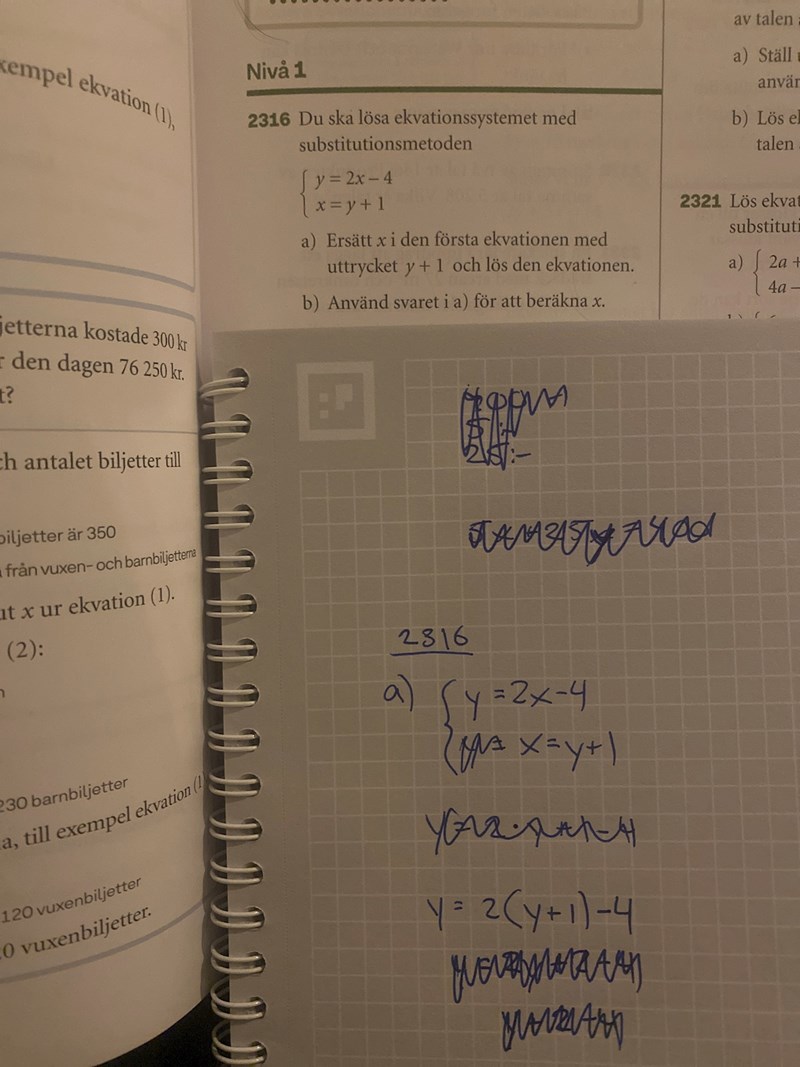 xempel ekvation (1),
jetterna kostade 300 kr
den dagen 76 250 kr.
t?
h antalet biljetter till
biljetter är 350
från vuxen- och barnbiljetterna
ut x ur ekvation (1).
(2):
230 barnbiljetter
a, till exempel ekvation (1
120 vuxenbiljetter
0 vuxenbiljetter.
Nivå 1
2316 Du ska lösa ekvationssystemet med
substitutionsmetoden
y = 2x – 4
x = y + 1
a) Ersätt x i den första ekvationen med
uttrycket y + 1 och lös den ekvationen.
b) Använd svaret i a) för att beräkna x.
av talen
a) Ställ
använ
b) Lös ek
talen
2321 Lös ekvat
substituti
a) { 2a +
4a –
2316
a) { y = 2x-4
x = y+1
y = 2(y+1)-4